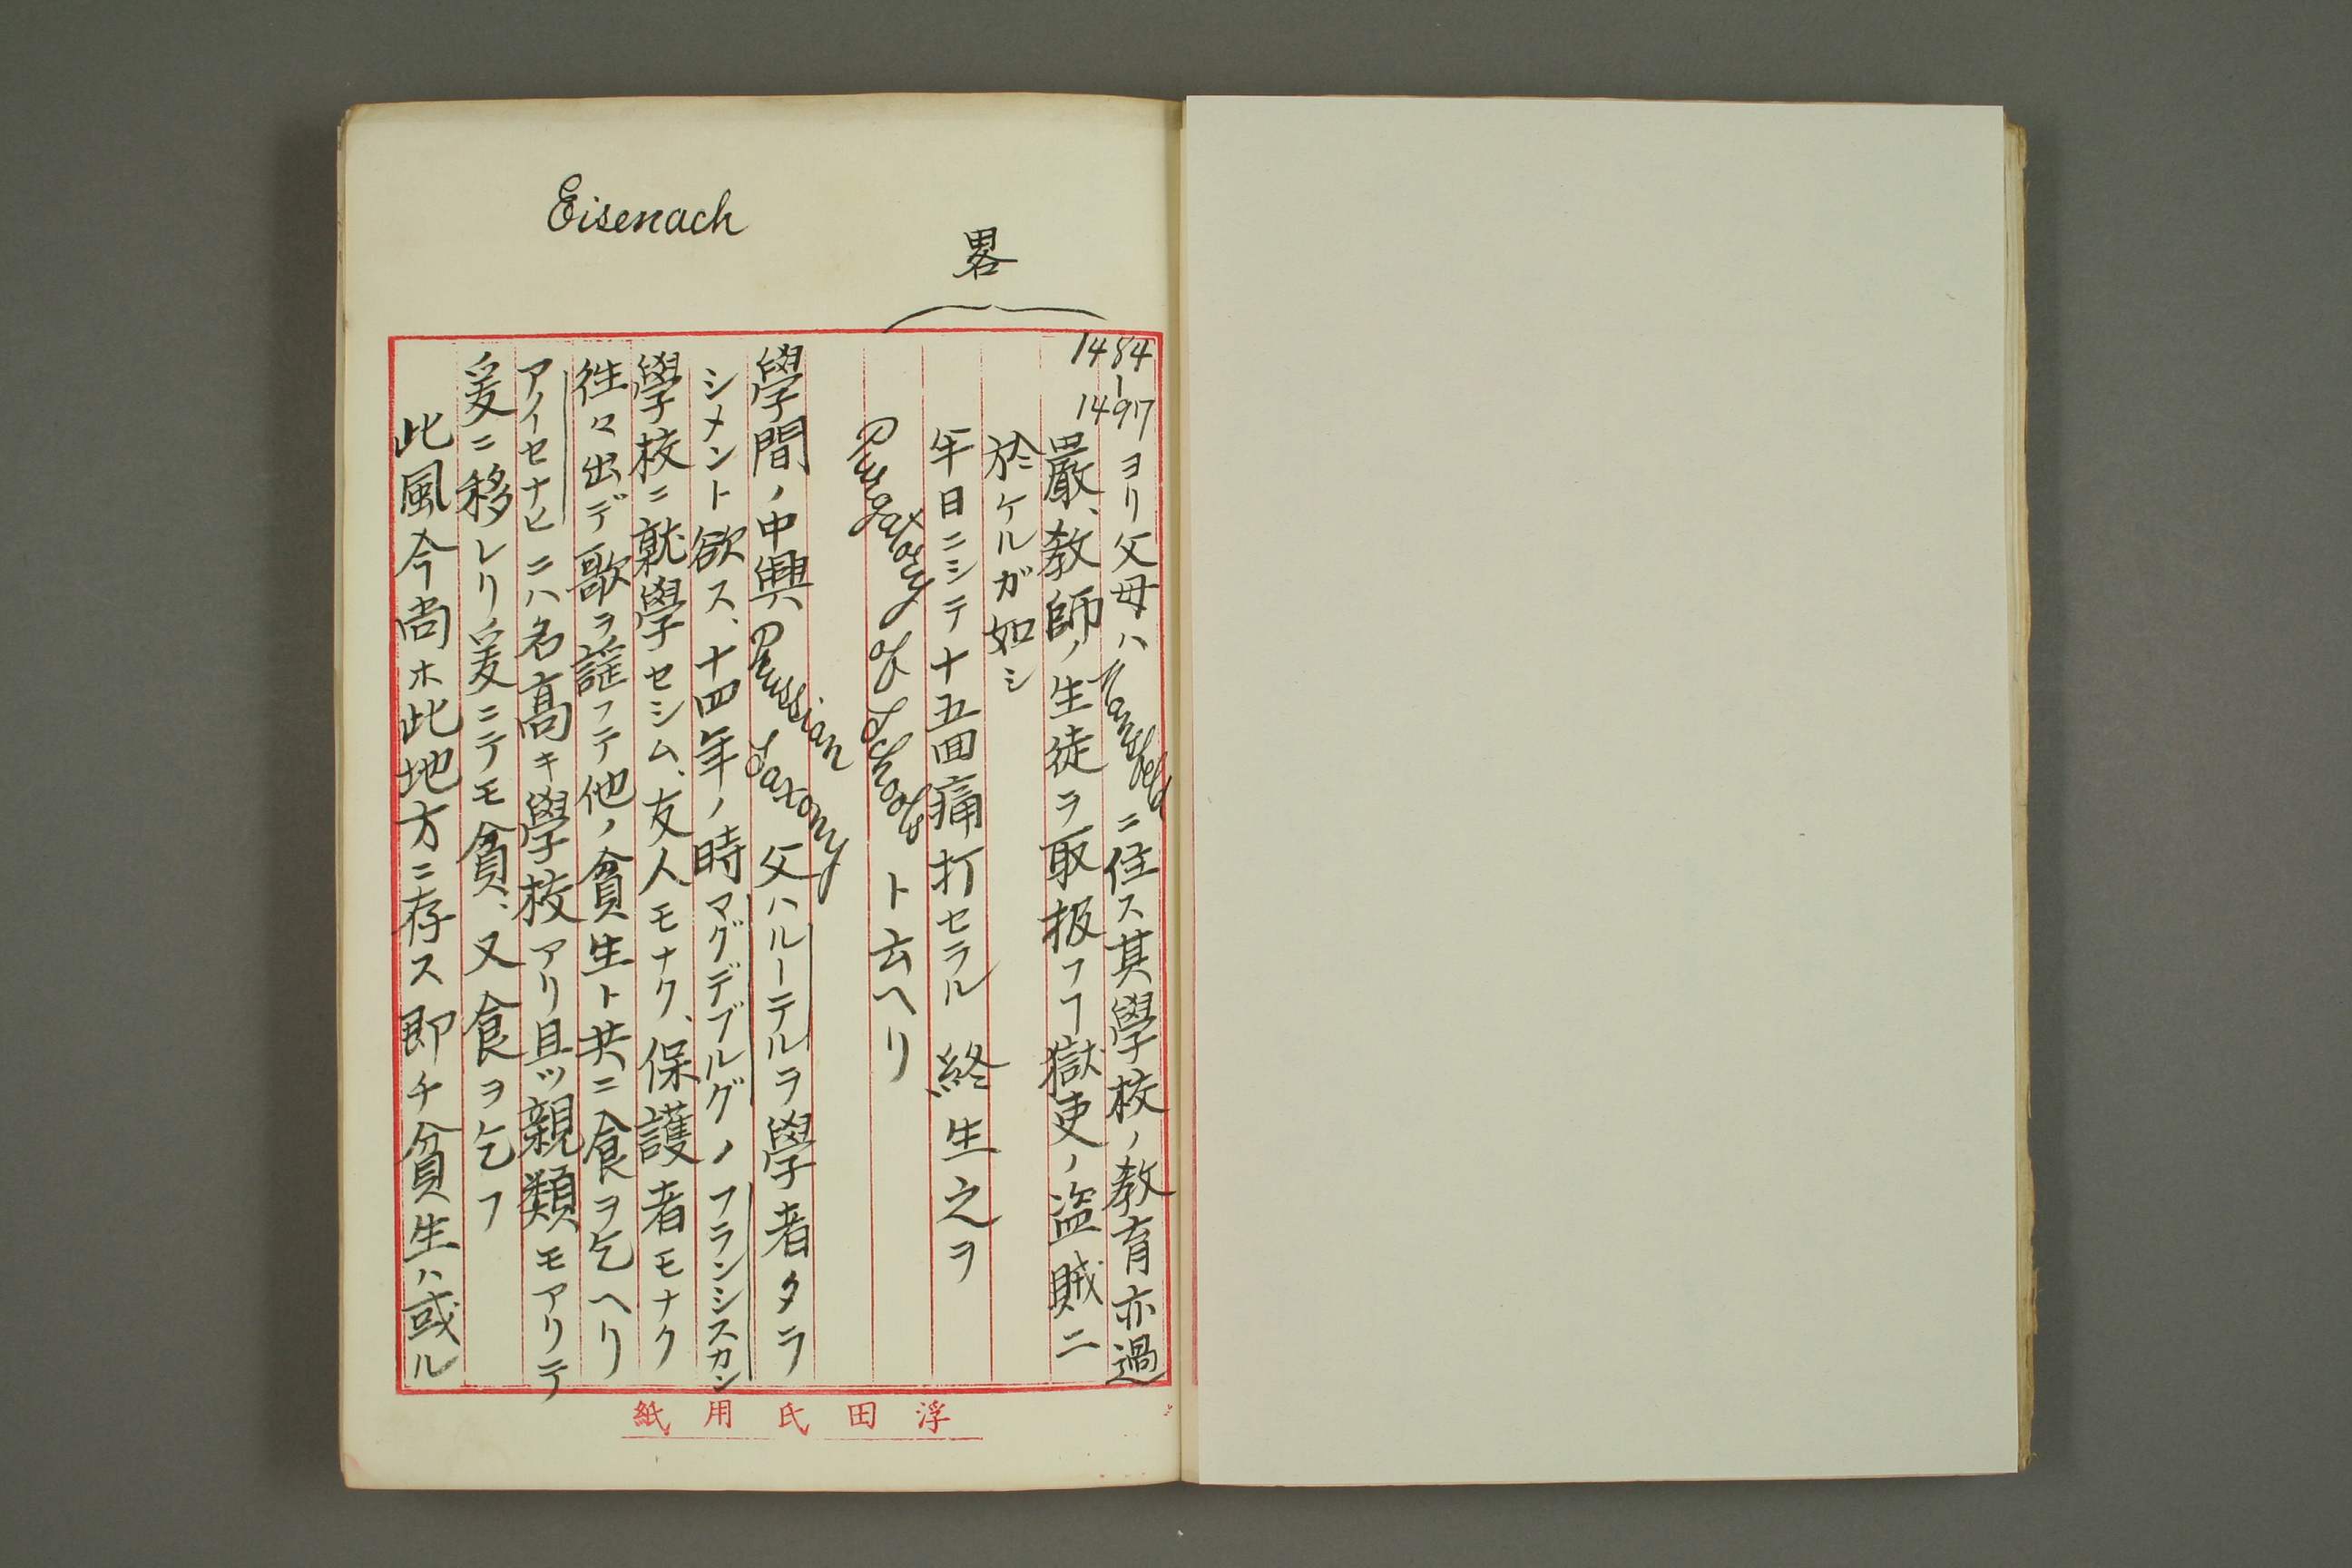 Eisenach
畧
1484-1497ヨリ父母ハMansfeldニ住ス其學校ノ教育亦過
嚴、教師ノ生徒ヲ取扱フヿ獄吏ノ盗賊ニ
於ケルガ如シ
午日ニシテ十五回痛打セラル 終生之ヲ
Purgatory of Schools ト云ヘリ
學問ノ中興、Prussian Saxony 父ハルーテルヲ學者タラ
シメント欲ス、十四年ノ時マグデブルグノフランシスカン
學校ニ就學セシム、友人モナク、保護者モナク
徃々出デ歌ヲ謡フテ他ノ貧生ト共ニ食ヲ乞ヘリ
アイセナヒニハ名高キ學校アリ且ツ親類モアリテ
爰ニ移レリ爰ニテモ貧、又食ヲ乞フ
此風今尚ホ此地方ニ存ス即チ貧生ハ或ル
浮田氏用紙